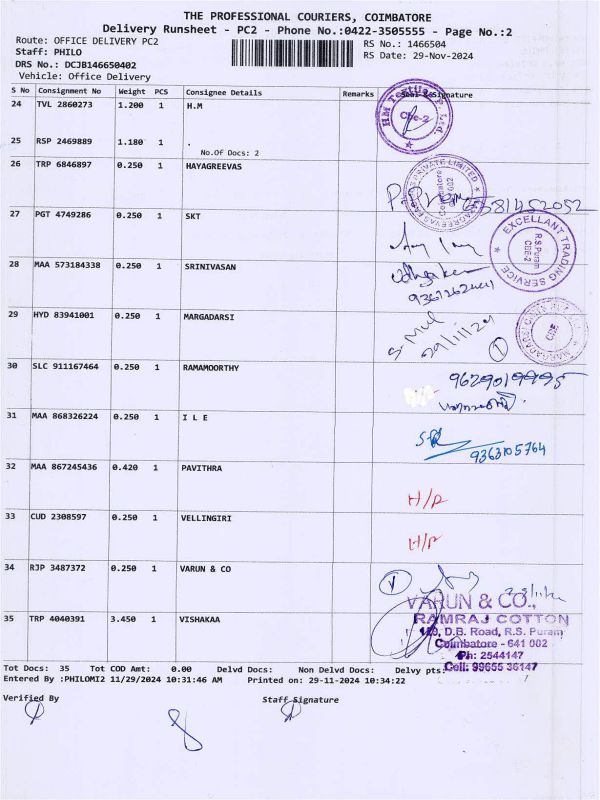 THE PROFESSIONAL COURIERS, COIMBATORE
Delivery Runsheet - PC2 - Phone No.:0422-3505555 - Page No.:2
Route: OFFICE DELIVERY PC2
RS No.: 1466504
Staff: PHILO
RS Date: 29-Nov-2024
DRS No.: DCJB146650402
Vehicle: Office Delivery
S No Consignment No Weight PCS Consignee Details Remarks Seal & Signature
24 TVL 2860273 1.200 1 H.M
HM Textiles P. Ltd.
CBE-2
25 RSP 2469889 1.180 1 .
No.Of Docs: 2
26 TRP 6846897 0.250 1 HAYAGREEVAS
PRIVATE LIMITED
Coimbatore
27 PGT 4749286 0.250 1 SKT
EXCELLANT TRADING SERVICE
R.S.Puram
CBE-2
28 MAA 573184338 0.250 1 SRINIVASAN
29 HYD 83941001 0.250 1 MARGADARSI
29/11/24
CBE
30 SLC 911167464 0.250 1 RAMAMOORTHY
9629019995
31 MAA 868326224 0.250 1 I L E
9363105764
32 MAA 867245436 0.420 1 PAVITHRA
H/P
33 CUD 2308597 0.250 1 VELLINGIRI
H/P
34 RJP 3487372 0.250 1 VARUN & CO
VARUN & CO.,
35 TRP 4040391 3.450 1 VISHAKAA
RAMRAJ COTTON
D.B. Road, R.S. Puram
Coimbatore - 641 002
Ph: 2544147
Cell: 99655 36147
Tot Docs: 35 Tot COD Amt: 0.00 Delvd Docs: Non Delvd Docs: Delvy pts:
Entered By :PHILOMI2 11/29/2024 10:31:46 AM Printed on: 29-11-2024 10:34:22
Verified By Staff Signature